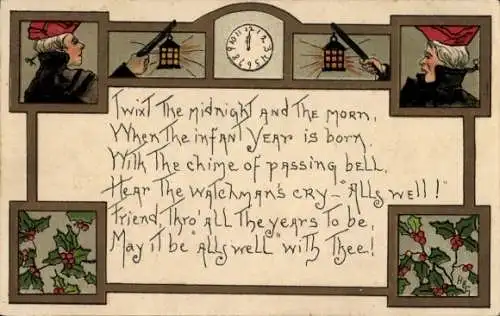 'Twixt The midnight and The morn,
When The infant Year is born,
With The chime of passing bell,
Hear The Watchman's cry - "All's well!"
Friend Thro' all The years To be,
May it be "all's well" with Thee!